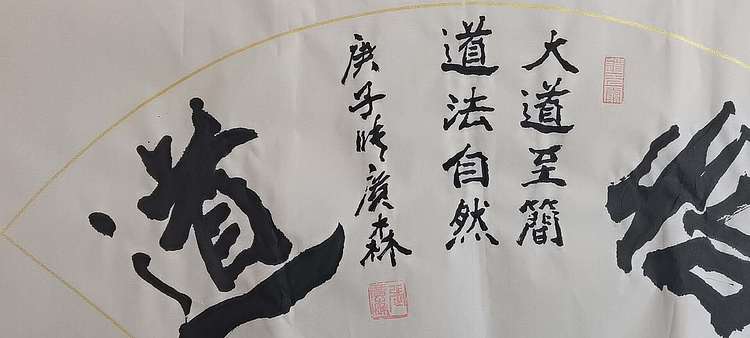 大道至簡
道法自然
庚子 廣森
道